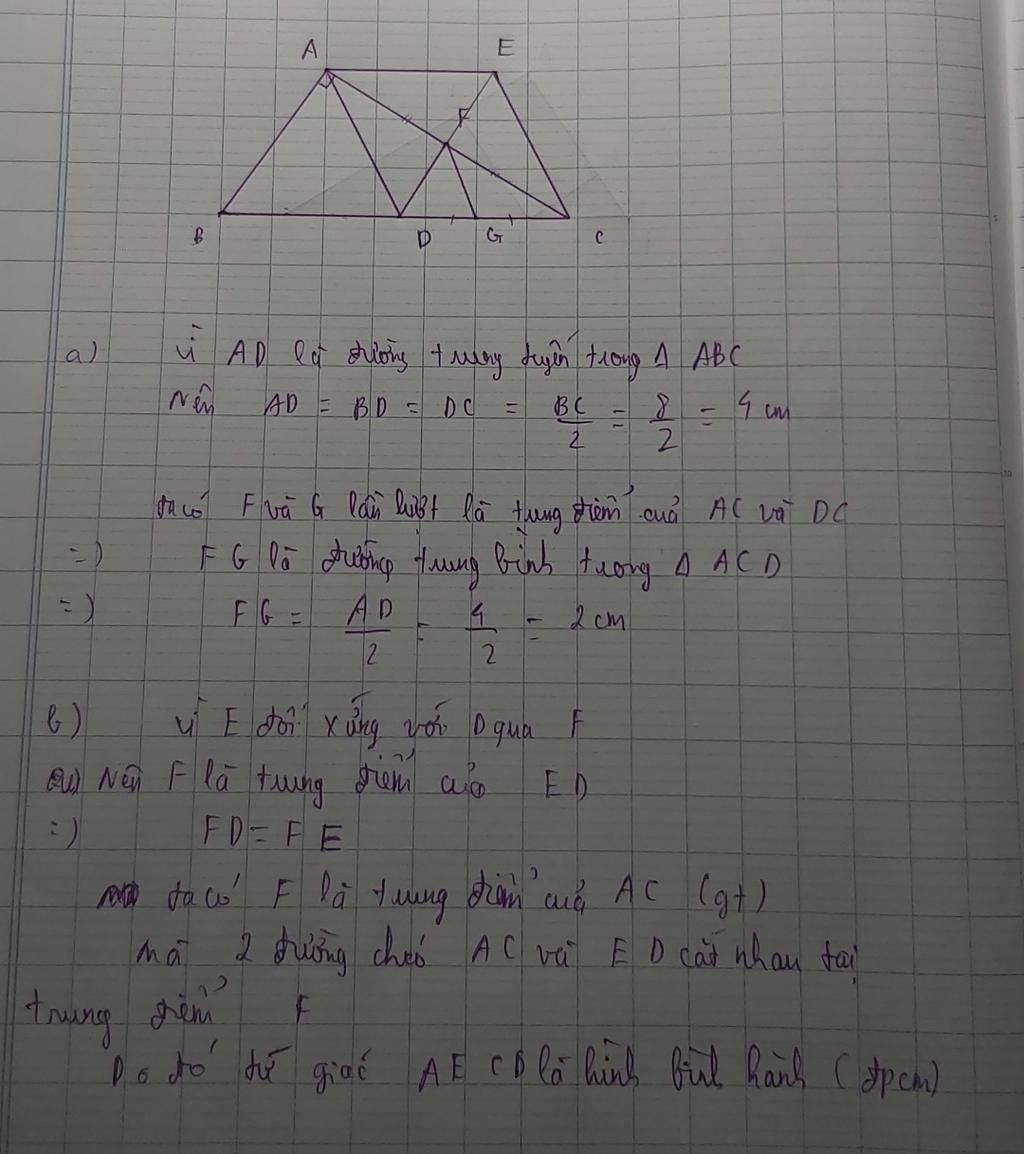 A E
F
B D G C
a) Vì AD là đường trung tuyến trong Δ ABC
Nên AD = BD = DC = BC/2 = 8/2 = 4 cm
ta có F và G lần lượt là trung điểm của AC và DC
=) FG là đường trung bình trong Δ ACD
=) FG = AD/2 = 4/2 = 2 cm
b) Vì E đối xứng với D qua F
Nên F là trung điểm của ED
=) FD = FE
ta có F là trung điểm của AC (gt)
mà 2 đường chéo AC và ED cắt nhau tại
trung điểm F
Do đó tứ giác AECD là hình bình hành (đpcm)